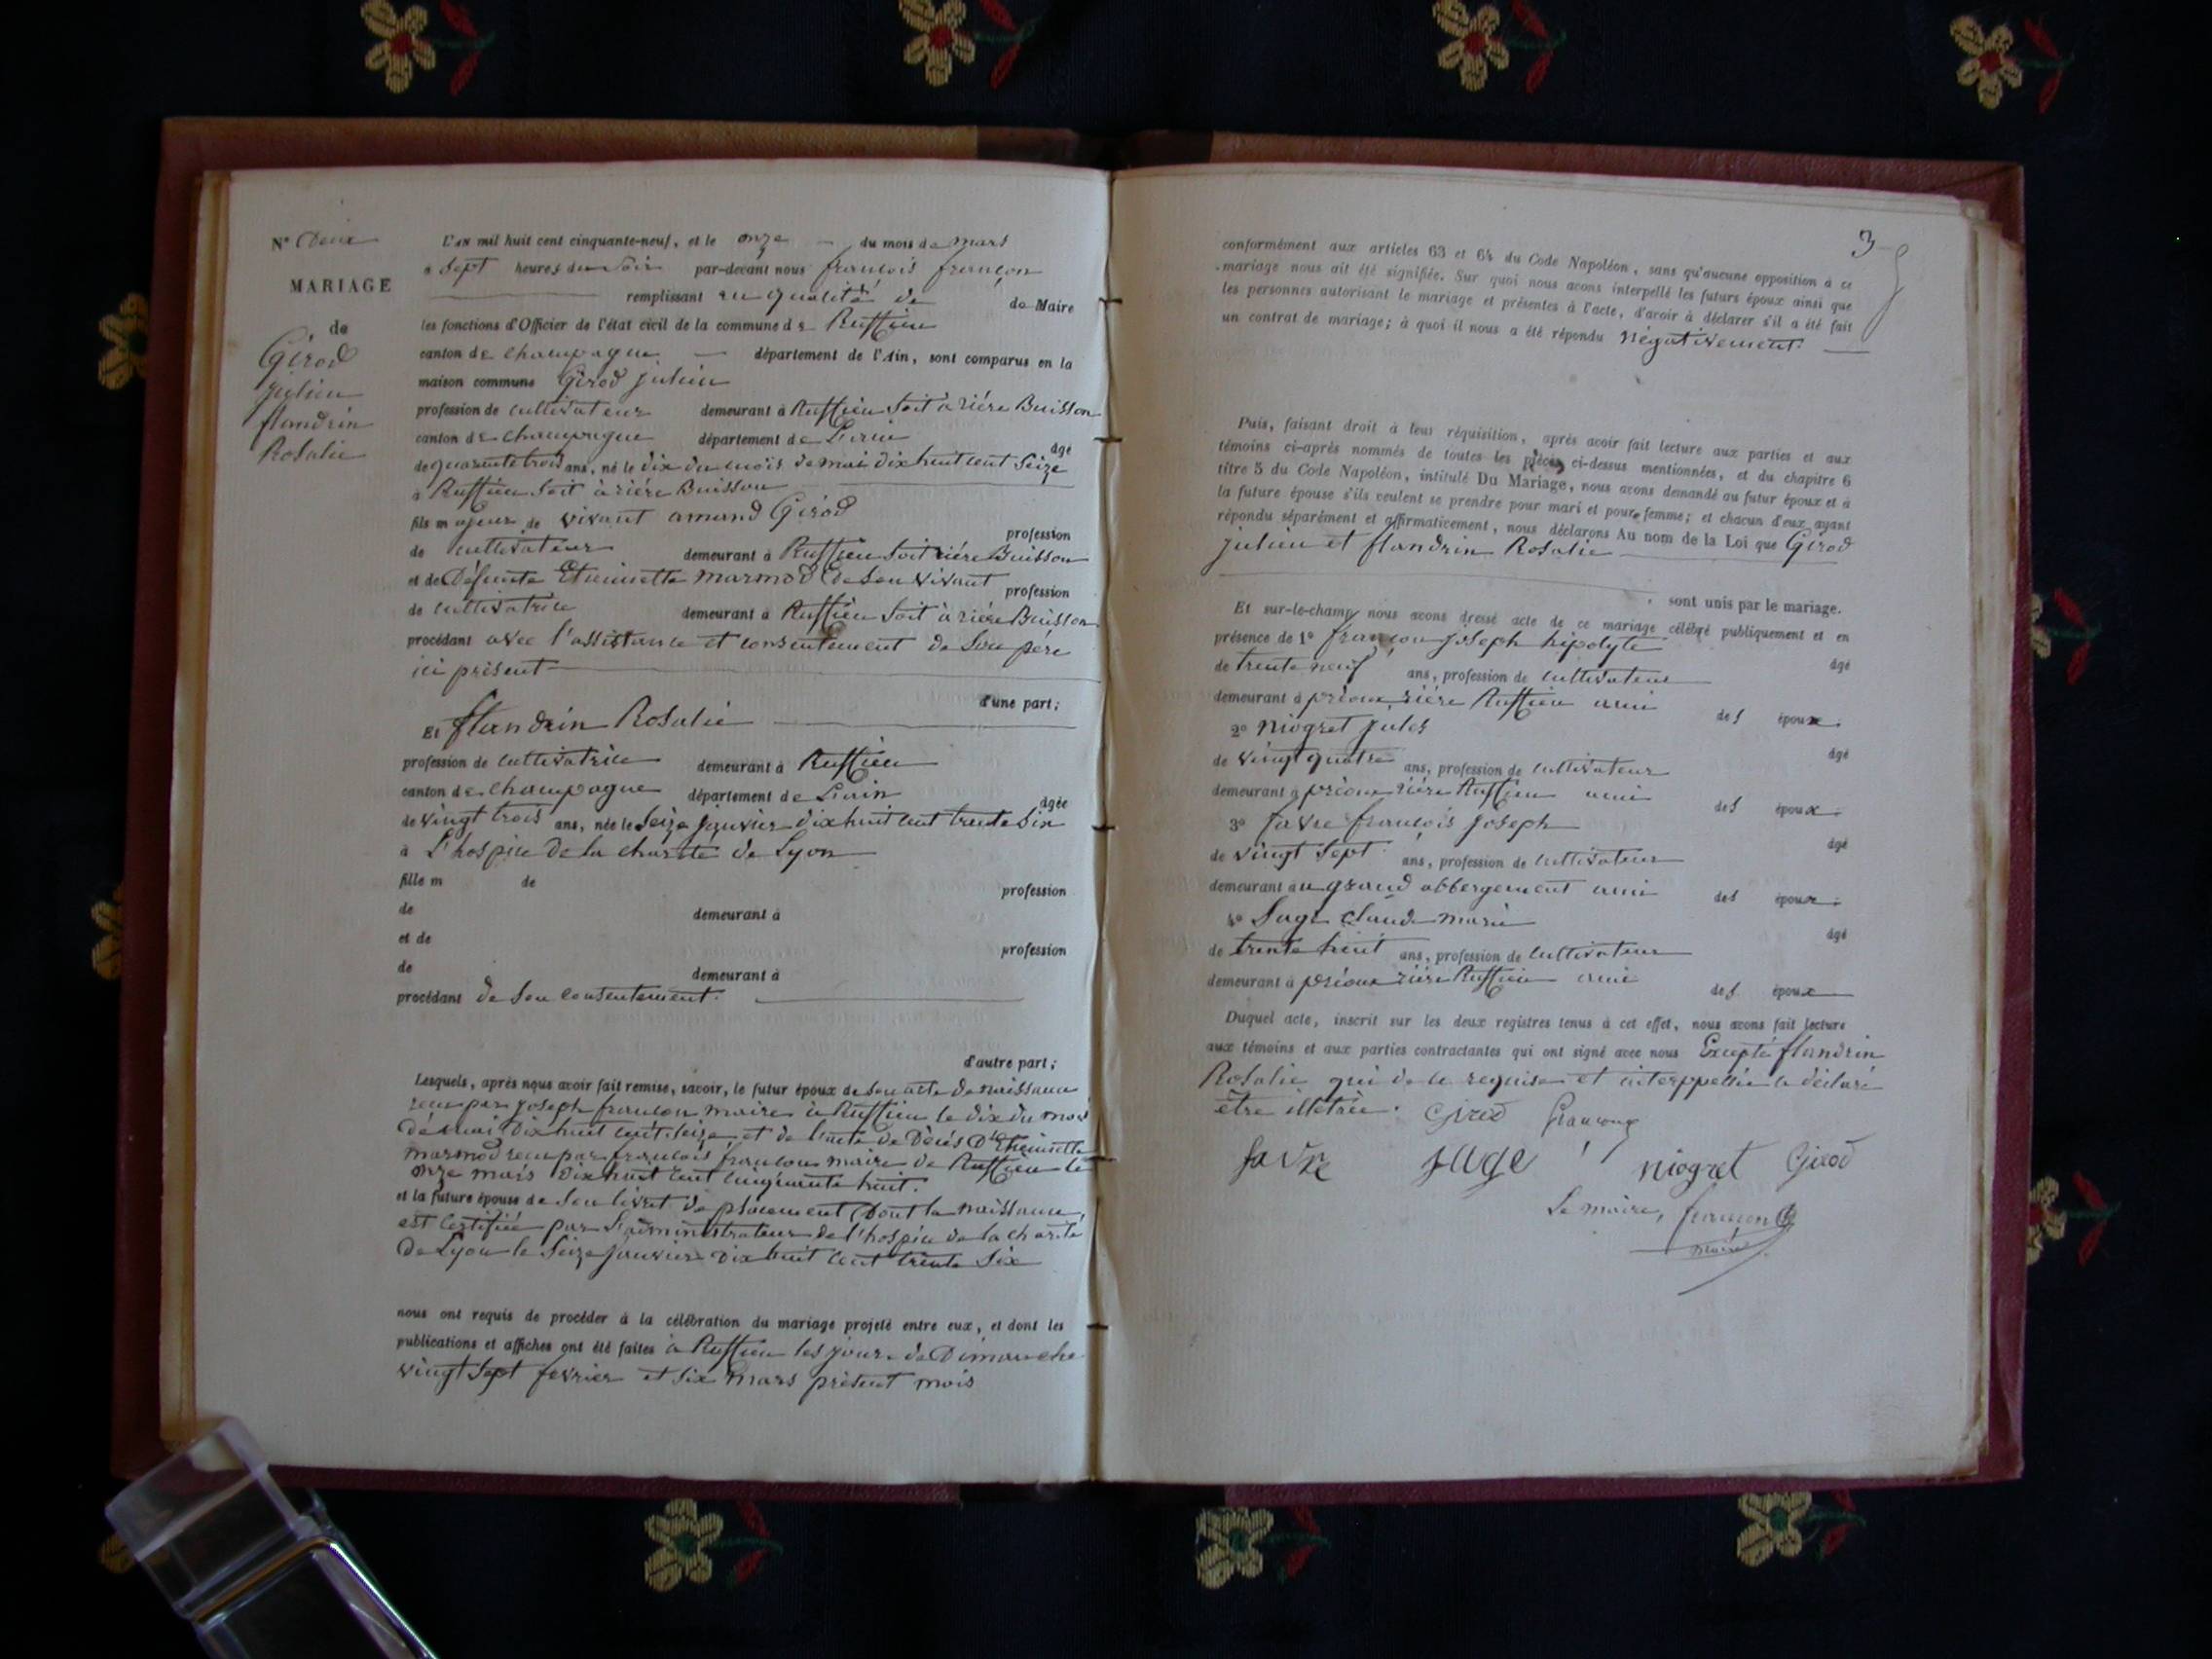 N° Deux
MARIAGE
de
Girod
julien
flandrin
Rosalie
L'an mil huit cent cinquante-neuf, et le onze du mois de mars
à sept heures du soir par-devant nous françois françon
remplissant en qualité de de Maire
les fonctions d'Officier de l'état civil de la commune de Ruffieu
canton de champagne département de l'Ain, sont comparus en la
maison commune Girod julien
profession de cultivateur demeurant à Ruffieu soit àrière Buisson
canton de champagne département de L'ain âgé
de quarante trois ans, né le dix du mois de mai dix huit cent seize
à Ruffieu soit àrière Buisson
fils majeur de vivant amand Girod profession
de cultivateur demeurant à Ruffieu soit rière Buisson
et de Défunte Etiennette marmod de son vivant profession
de cultivatrice demeurant à Ruffieu soit àrière Buisson
procédant avec l'assistance et consentement de son père
ici présent
d'une part;
Et flandrin Rosalie
profession de cultivatrice demeurant à Ruffieu
canton de champagne département de L'ain âgée
de vingt trois ans, née le seize janvier dix huit cent trente six
à L'hospice de la charité de Lyon
fille m de profession
de demeurant à
et de profession
de demeurant à
procédant de son consentement.
d'autre part;
Lesquels, après nous avoir fait remise, savoir, le futur époux de son acte de naissance
recu par joseph françon maire à Ruffieu le dix du mois
de mai dix huit cent seize et de l'acte de Décès Dte Etiennette
marmod recu par françois françon maire de Ruffieu le
onze mars dix huit cent cinquante huit.
et la future épouse de son livret de placement dont la naissance,
est certifiée par L'administrateur de l'hospice de la charité
de Lyon le seize janvier dix huit cent trente six
nous ont requis de procéder à la célébration du mariage projeté entre eux, et dont les
publications et affiches ont été faites à Ruffieu les jours de Dimanche
vingt sept fevrier et six mars présent mois
3
conformément aux articles 63 et 64 du Code Napoléon, sans qu'aucune opposition à ce
mariage nous ait été signifiée. Sur quoi nous avons interpellé les futurs époux ainsi que
les personnes autorisant le mariage et présentes à l'acte, d'avoir à déclarer s'il a été fait
un contrat de mariage; à quoi il nous a été répondu négativement.
Puis, faisant droit à leur réquisition, après avoir fait lecture aux parties et aux
témoins ci-après nommés de toutes les pièces ci-dessus mentionnées, et du chapitre 6
titre 5 du Code Napoléon, intitulé Du Mariage, nous avons demandé au futur époux et à
la future épouse s'ils veulent se prendre pour mari et pour femme; et chacun d'eux ayant
répondu séparément et affirmativement, nous déclarons Au nom de la Loi que Girod
julien et flandrin Rosalie
, sont unis par le mariage.
Et sur-le-champ nous avons dressé acte de ce mariage célébré publiquement et en
présence de 1° françon joseph hipolyte âgé
de trente neuf ans, profession de cultivateur
demeurant à préoux rière Ruffieu ami des époux.
2° niogret jules âgé
de vingt quatre ans, profession de cultivateur
demeurant à préoux rière Ruffieu ami des époux.
3° favre françois joseph âgé
de vingt sept ans, profession de cultivateur
demeurant au grand abbergement ami des époux.
4° Suge claude marie âgé
de trente huit ans, profession de cultivateur
demeurant à préoux rière Ruffieu ami des époux
Duquel acte, inscrit sur les deux registres tenus à cet effet, nous avons fait lecture
aux témoins et aux parties contractantes qui ont signé avec nous Excepté flandrin
Rosalie qui de ce requise et interppellée a déclaré
être illétrée. Girod francong
favre suge niogret Girod
Le maire, françon
maire